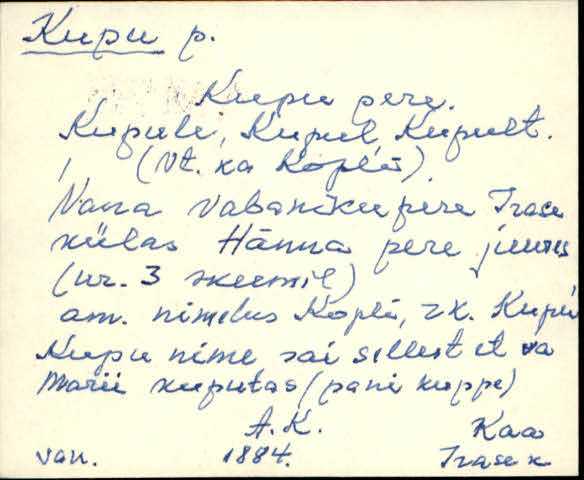 Kupu p.
Kupu pere.
Kupule, Kupul, Kupult.
(Vt. ka Koplü)
Vana vabanikupere Irase
külas Hännа pere juures
(nr. 3 skeemil)
am. nimetus Koplü, rk. Kupu
Kupu nime sai sellest et va
Marii kuputas (pani kuppe)
A.K. Kaa
van. 1884. Irase k